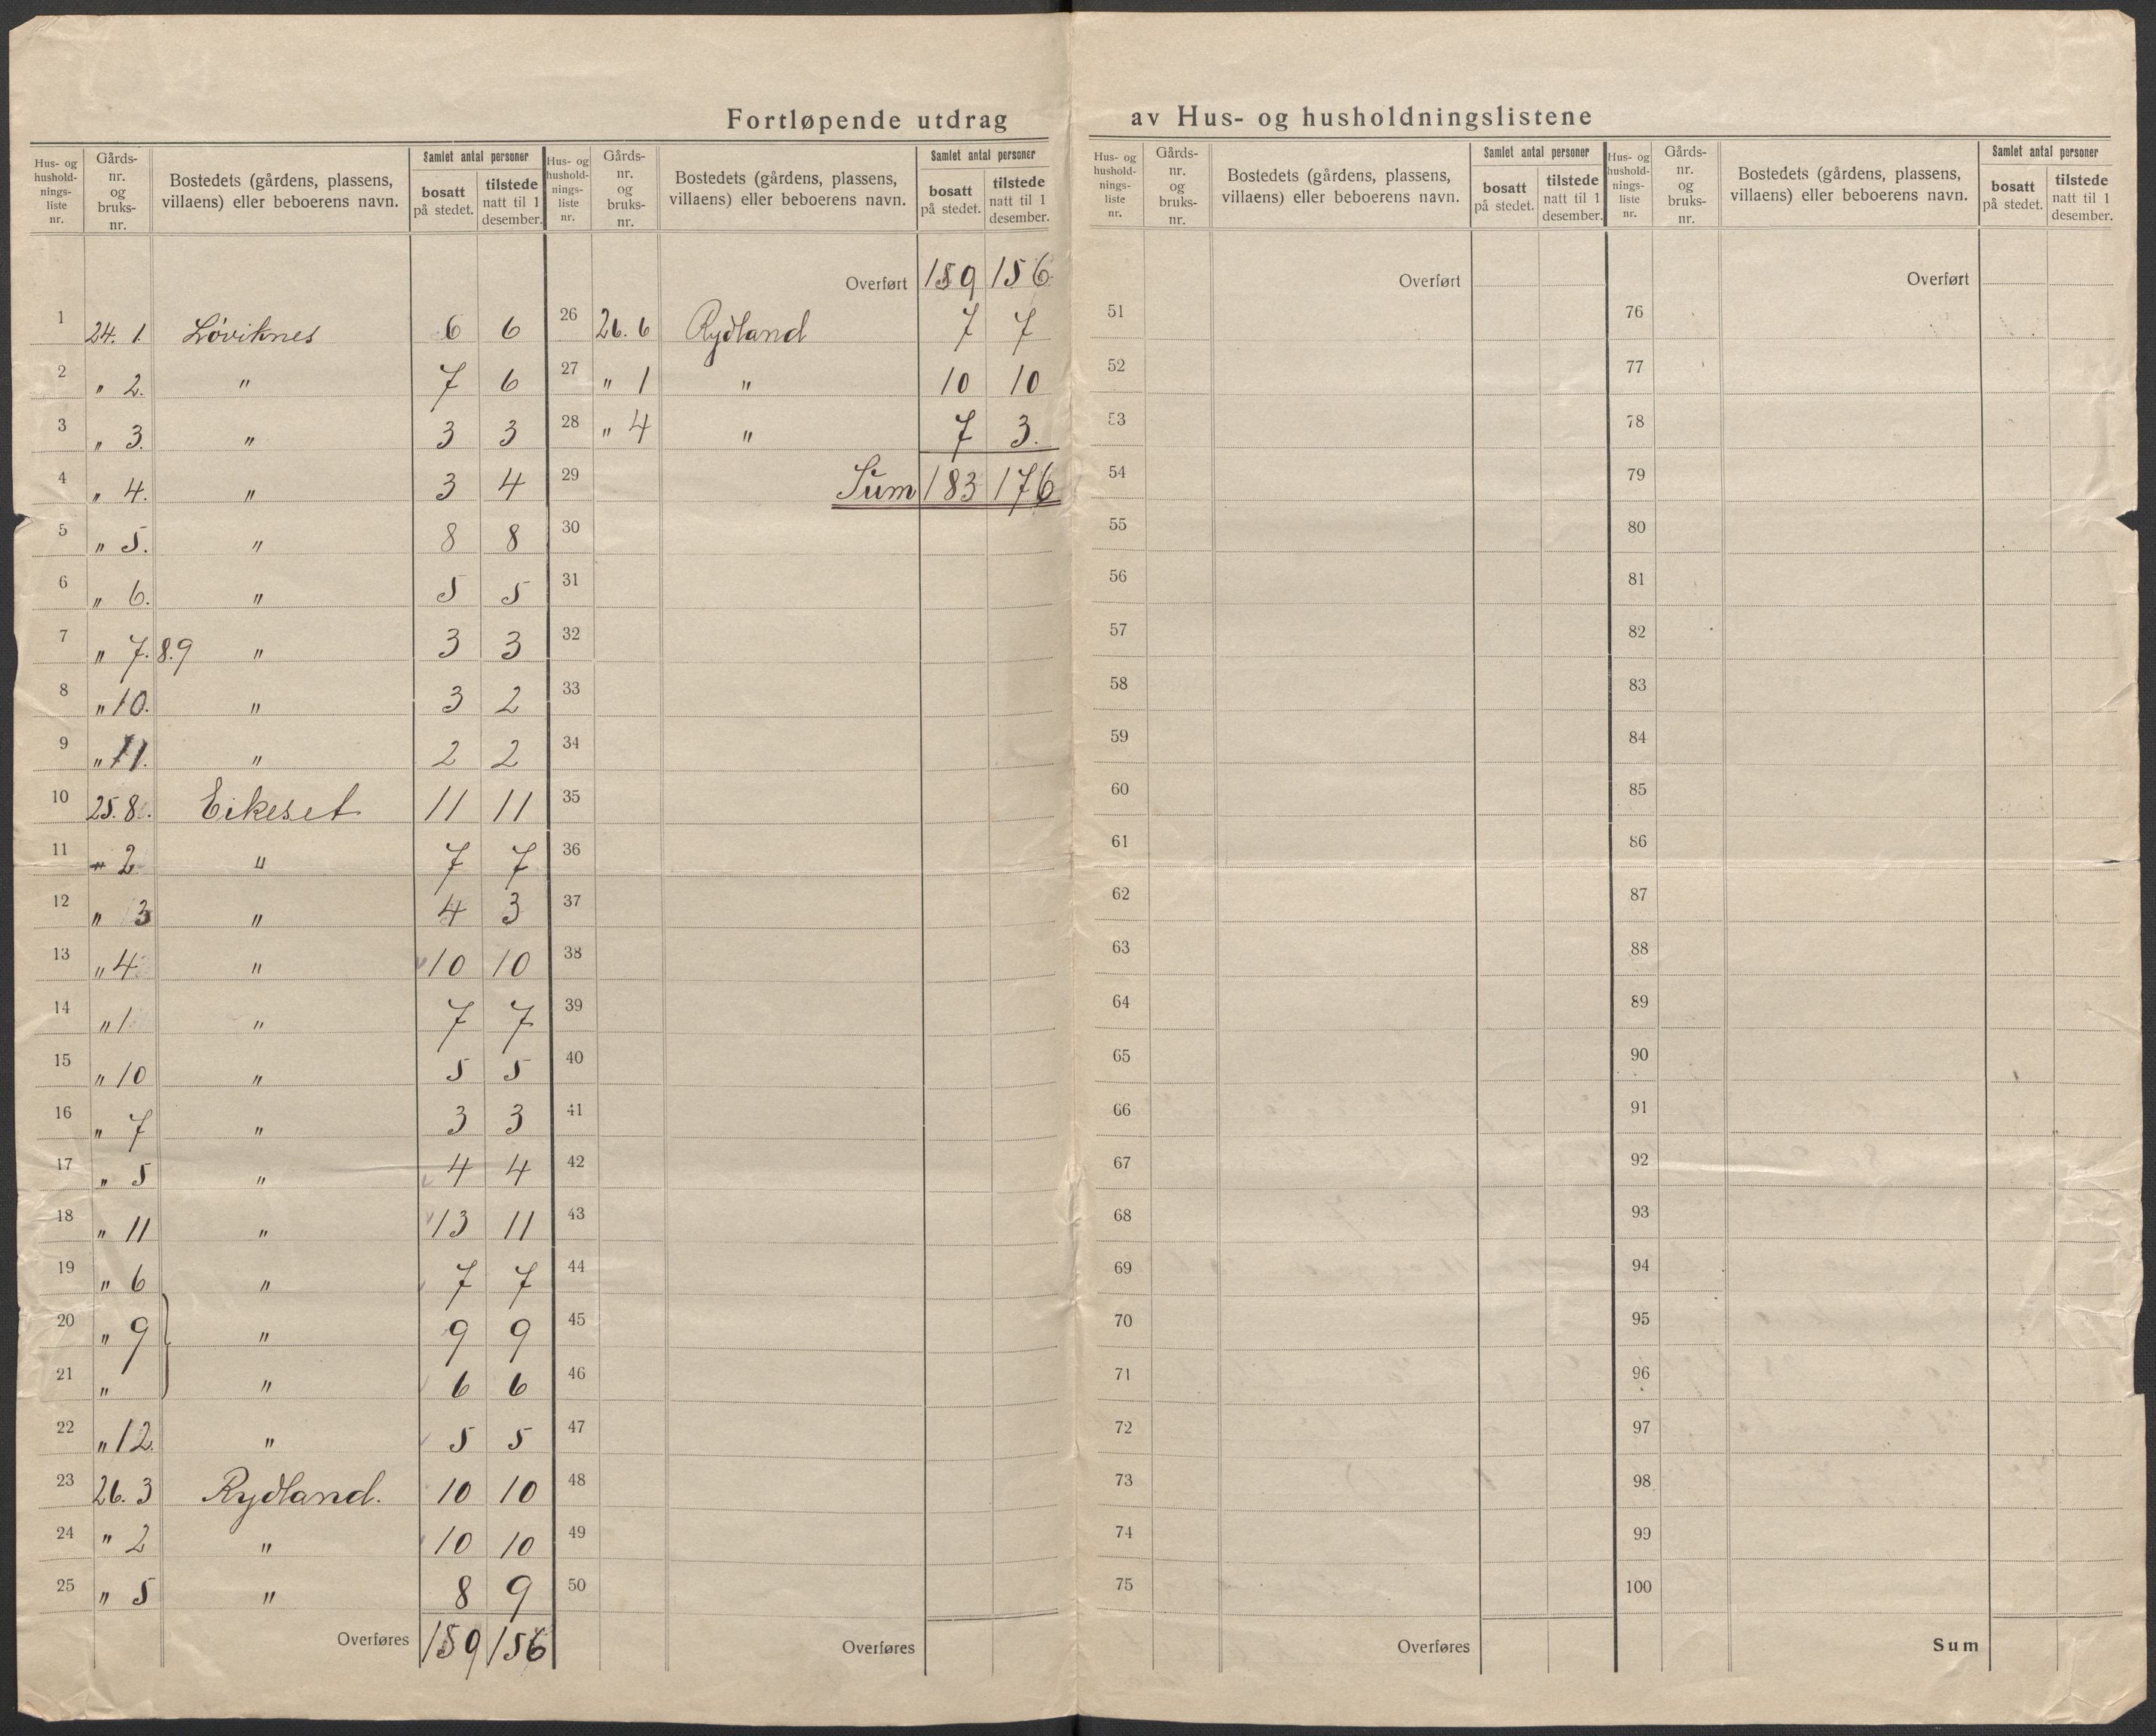 Fortløpende utdrag av Hus- og husholdningslistene
Hus- og hushold-nings-liste nr. Gårds-nr. og bruks-nr. Bostedets (gårdens, plassens, villaens) eller beboerens navn. Samlet antal personer bosatt på stedet. tilstede natt til 1 desember.
1 24. 1. Løviknes 6 6
2 " 2. " 7 6
3 " 3. " 3 3
4 " 4. " 3 4
5 " 5. " 8 8
6 " 6. " 5 5
7 " 7. 8.9 " 3 3
8 " 10. " 3 2
9 " 11. " 2 2
10 25. 8. Eikeset 11 11
11 " 2 " 7 7
12 " 3 " 4 3
13 " 4 " 10 10
14 " 1 " 7 7
15 " 10 " 5 5
16 " 7 " 3 3
17 " 5 " 4 4
18 " 11 " 13 11
19 " 6 " 7 7
20 " 9 " 9 9
21 " " 6 6
22 " 12. " 5 5
23 26. 3 Rydland. 10 10
24 " 2 " 10 10
25 " 5 " 8 9
Overføres 159 156
Hus- og hushold-nings-liste nr. Gårds-nr. og bruks-nr. Bostedets (gårdens, plassens, villaens) eller beboerens navn. Samlet antal personer bosatt på stedet. tilstede natt til 1 desember.
Overført 159 156
26 26. 6 Rydland 7 7
27 " 1 " 10 10
28 " 4 " 7 3.
29 Sum 183 176
30
31
32
33
34
35
36
37
38
39
40
41
42
43
44
45
46
47
48
49
50
Overføres
Hus- og hushold-nings-liste nr. Gårds-nr. og bruks-nr. Bostedets (gårdens, plassens, villaens) eller beboerens navn. Samlet antal personer bosatt på stedet. tilstede natt til 1 desember.
Overført
51
52
53
54
55
56
57
58
59
60
61
62
63
64
65
66
67
68
69
70
71
72
73
74
75
Overføres
Hus- og hushold-nings-liste nr. Gårds-nr. og bruks-nr. Bostedets (gårdens, plassens, villaens) eller beboerens navn. Samlet antal personer bosatt på stedet. tilstede natt til 1 desember.
Overført
76
77
78
79
80
81
82
83
84
85
86
87
88
89
90
91
92
93
94
95
96
97
98
99
100
Sum